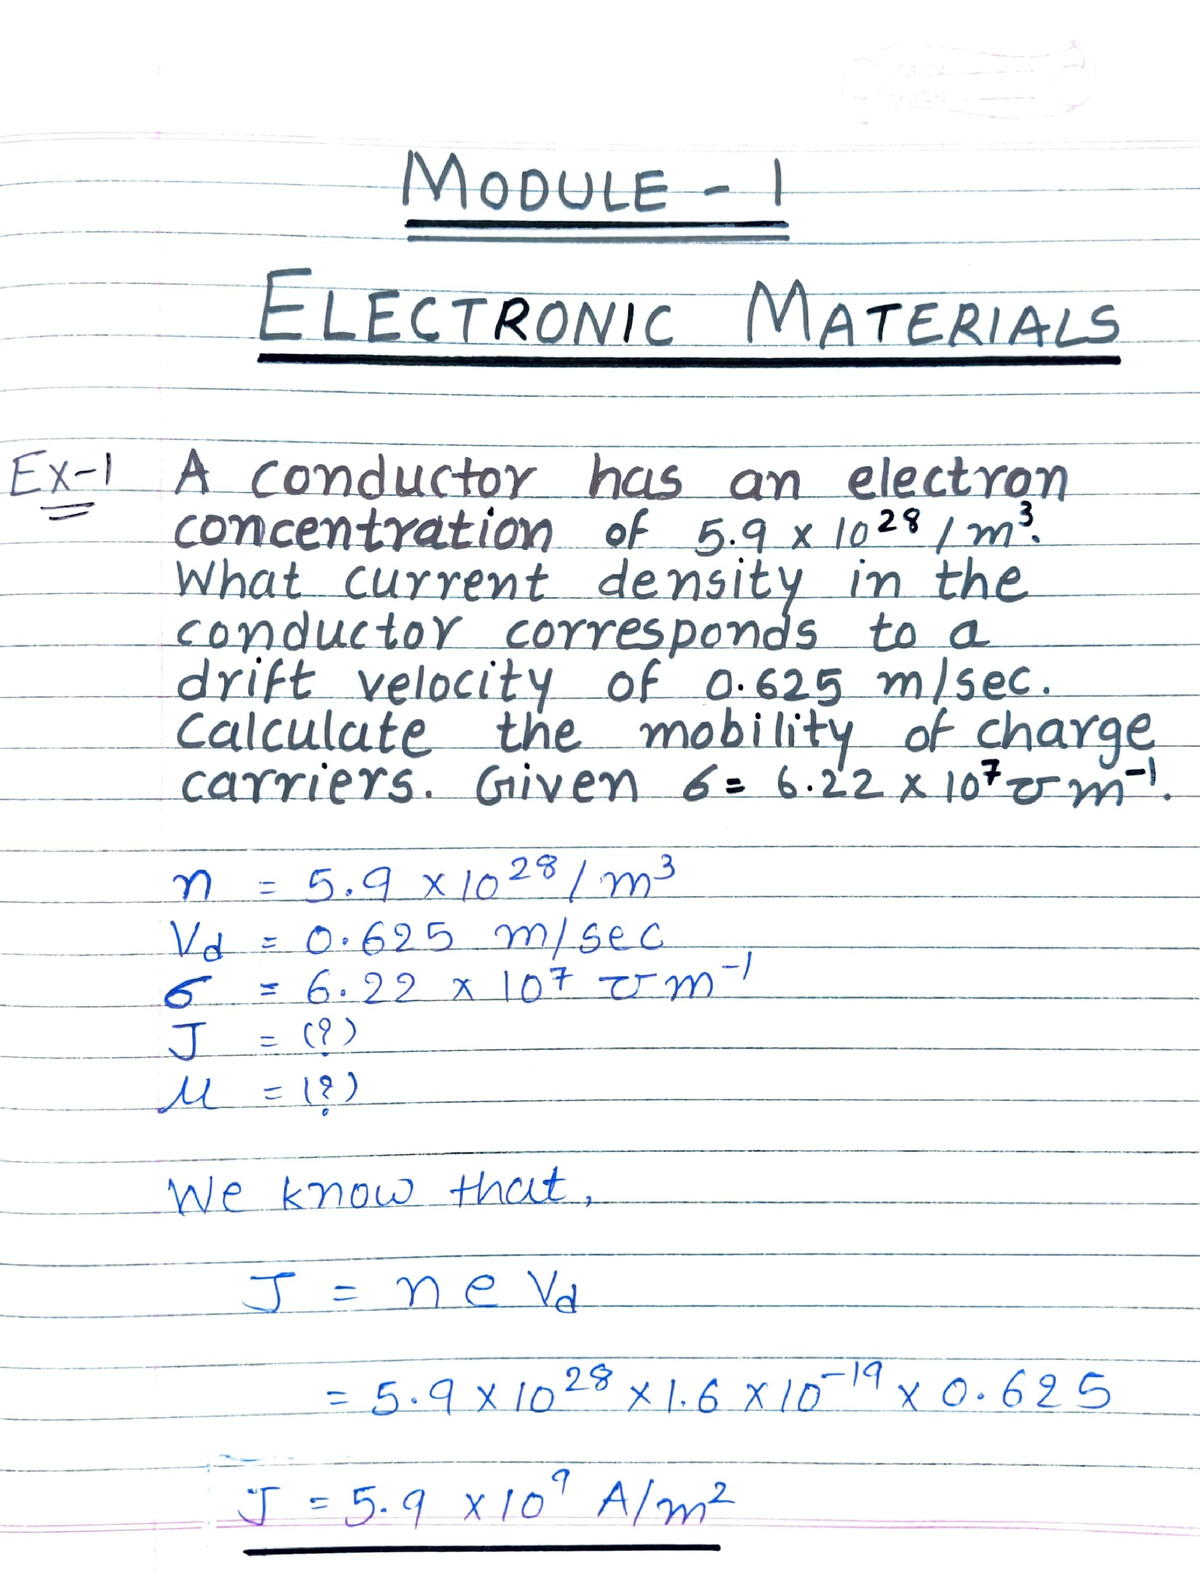 MODULE - 1
ELECTRONIC MATERIALS
Ex-1 A conductor has an electron
concentration of 5.9 x 10²⁸ / m³.
What current density in the
conductor corresponds to a
drift velocity of 0.625 m/sec.
Calculate the mobility of charge
carriers. Given σ = 6.22 x 10⁷ ℧ m⁻¹.
n = 5.9 x 10²⁸ / m³
Vd = 0.625 m/sec
σ = 6.22 x 10⁷ ℧ m⁻¹
J = (?)
μ = (?)
We know that,
J = n e Vd
= 5.9 x 10²⁸ x 1.6 x 10⁻¹⁹ x 0.625
J = 5.9 x 10⁹ A/m²